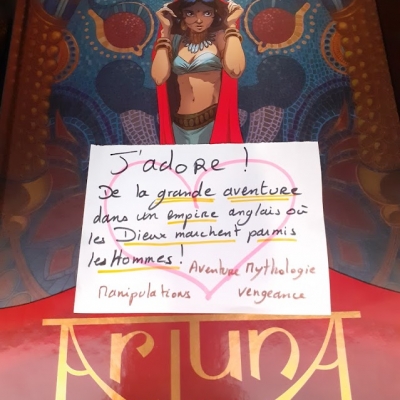 J'adore !
De la grande aventure
dans un empire anglais où
les Dieux marchent parmis
les Hommes !
Aventure Mythologie
Manipulations vengeance
ArjunA